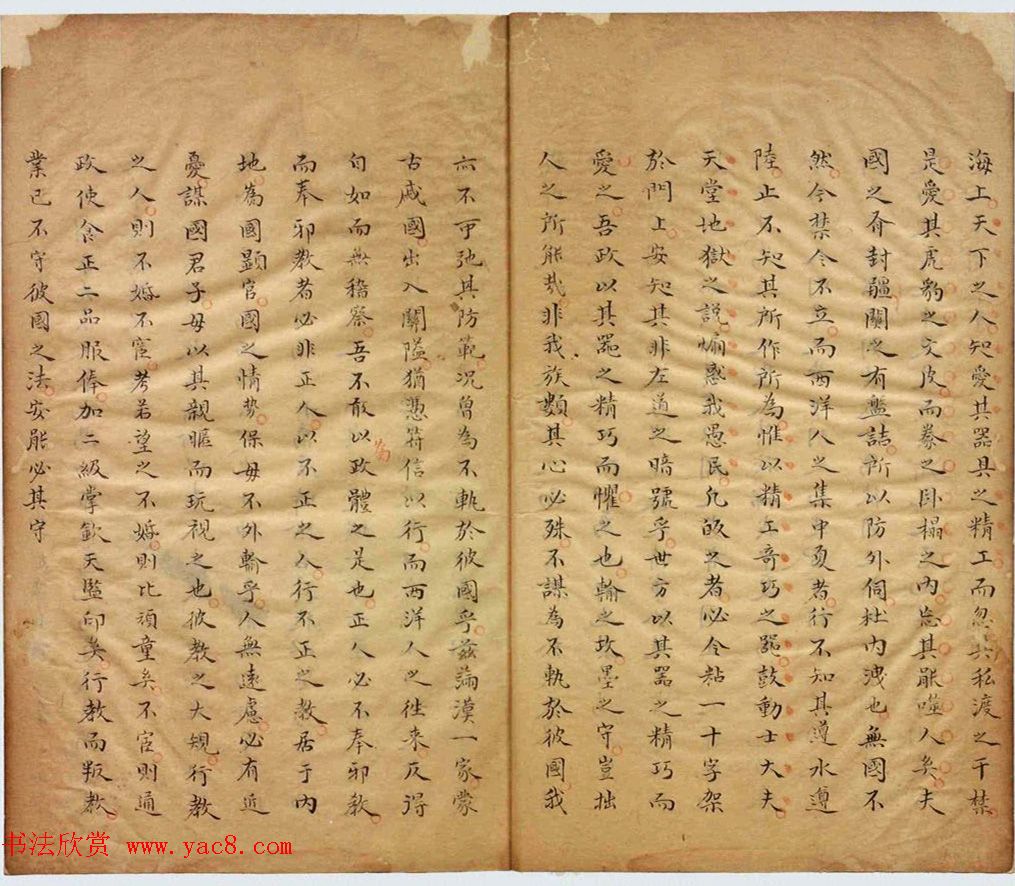 海上天下之人知愛其器具之精工而忽其私渡之干禁
是愛其虎豹之文皮而豢之臥榻之內忘其能噬人矣夫
國之有封疆關之有盤詰所以防外伺杜內洩也無國不
然今禁令不立而西洋人之集中夏者行不知其遵水遵
陸止不知其所作所為惟以精工奇巧之器鼓動士大夫
天堂地獄之說煽惑我愚民凡皈之者必令粘一十字架
於門上安知其非左道之暗號乎世方以其器之精巧而
愛之吾政以其器之精巧而懼之也輸之攻墨之守豈拙
人之所能哉非我族類其心必殊不謀為不軌於彼國我
亦不可弛其防範况曾為不軌於彼國乎茲滿漢一家蒙
古咸國出入關隘猶憑符信以行而西洋人之徃來反得
自如而無稽察吾不敢以為政體之是也正人必不奉邪教
而奉邪教者必非正人以不正之人行不正之教居于內
地為國顯官國之情勢保毋不外輸乎人無遠慮必有近
憂謀國君子毋以其親暱而玩視之也彼教之大規行教
之人則不婚不宦考若望之不婚則比頑童矣不宦則通
政使食正二品服俸加二級掌欽天監印矣行教而叛教
業已不守彼國之法安能必其守
书法欣赏 www.yac8.com